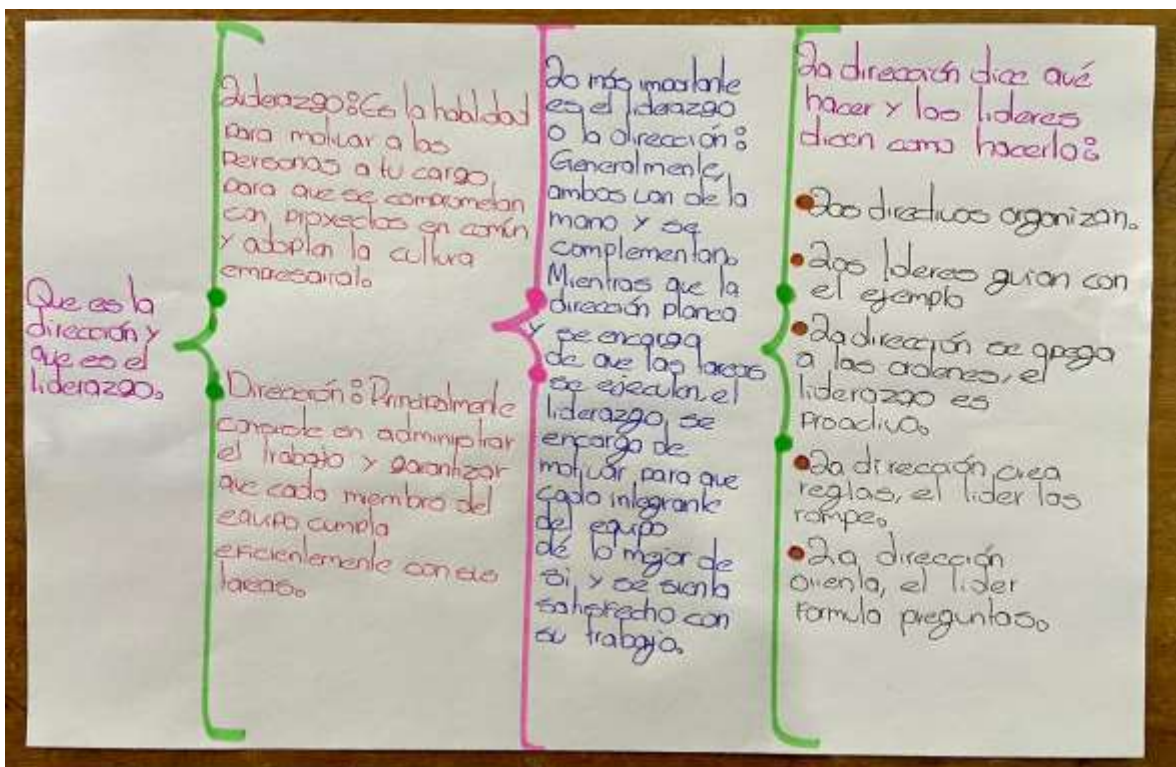 Que es la
dirección y
que es el
liderazgo.
Liderazgo: Es la habilidad
para motivar a las
personas a tu cargo,
para que se comprometan
con proyectos en común
y adoptan la cultura
empresarial.
Dirección: Principalmente
consiste en administrar
el trabajo y garantizar
que cada miembro del
equipo cumpla
eficientemente con sus
tareas.
Lo más importante
es el liderazgo
o la dirección:
Generalmente,
ambos van de la
mano y se
complementan.
Mientras que la
dirección planea
y se encarga
de que las tareas
se ejecuten, el
liderazgo, se
encarga de
motivar para que
cada integrante
del equipo
dé lo mejor de
si, y se sienta
satisfecho con
su trabajo.
La dirección dice qué
hacer y los lideres
dicen como hacerlo:
Los directivos organizan.
Los lideres guian con
el ejemplo
La dirección se apega
a las ordenes, el
liderazgo es
proactivo.
La dirección crea
reglas, el lider las
rompe.
La dirección
orienta, el lider
formula preguntas.